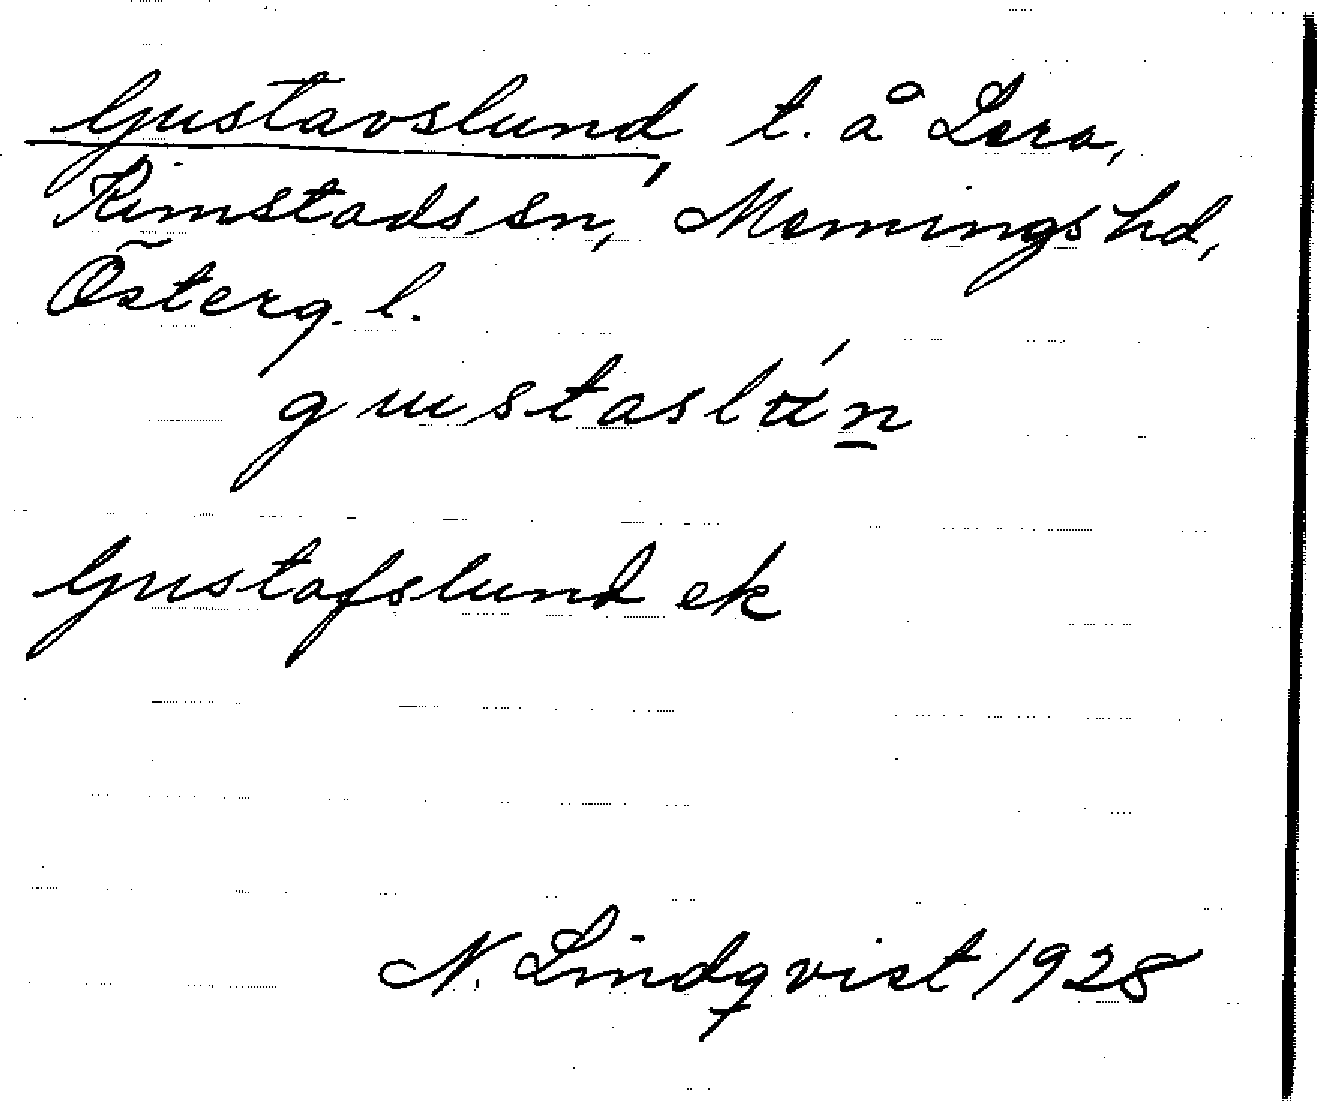 Gustavslund, t. å Lera,
Rimstads sn, Memings hd,
Österg. l.
gustaslún
Gustafslund ek
N. Lindqvist 1928